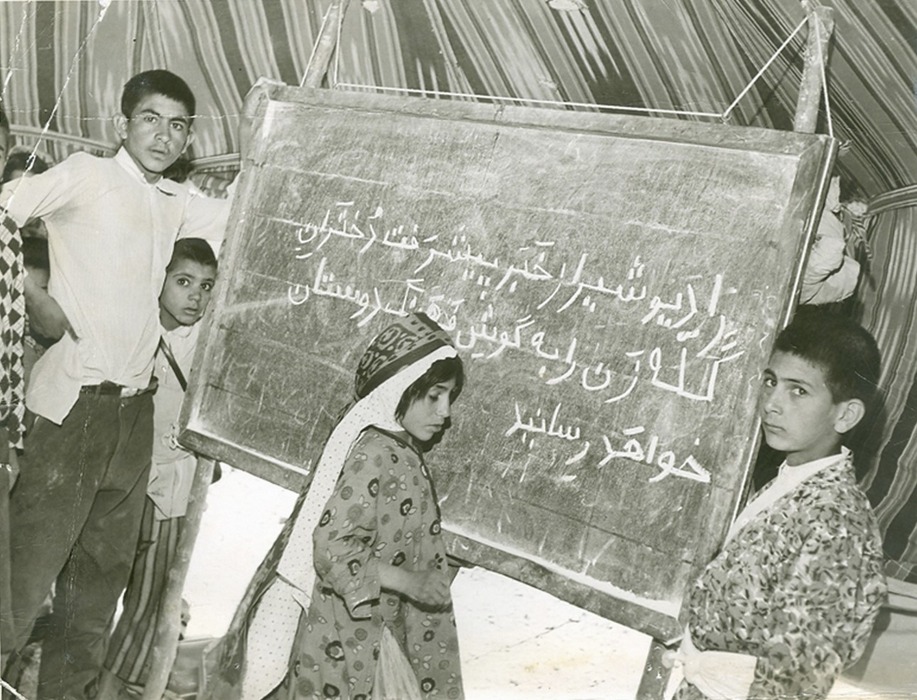 رادیو شیراز خَبَر پیشرَفت دُختَرانِ
گله زَن را به گوشِ فَرهَنگدوستان
خواهَد رسانید